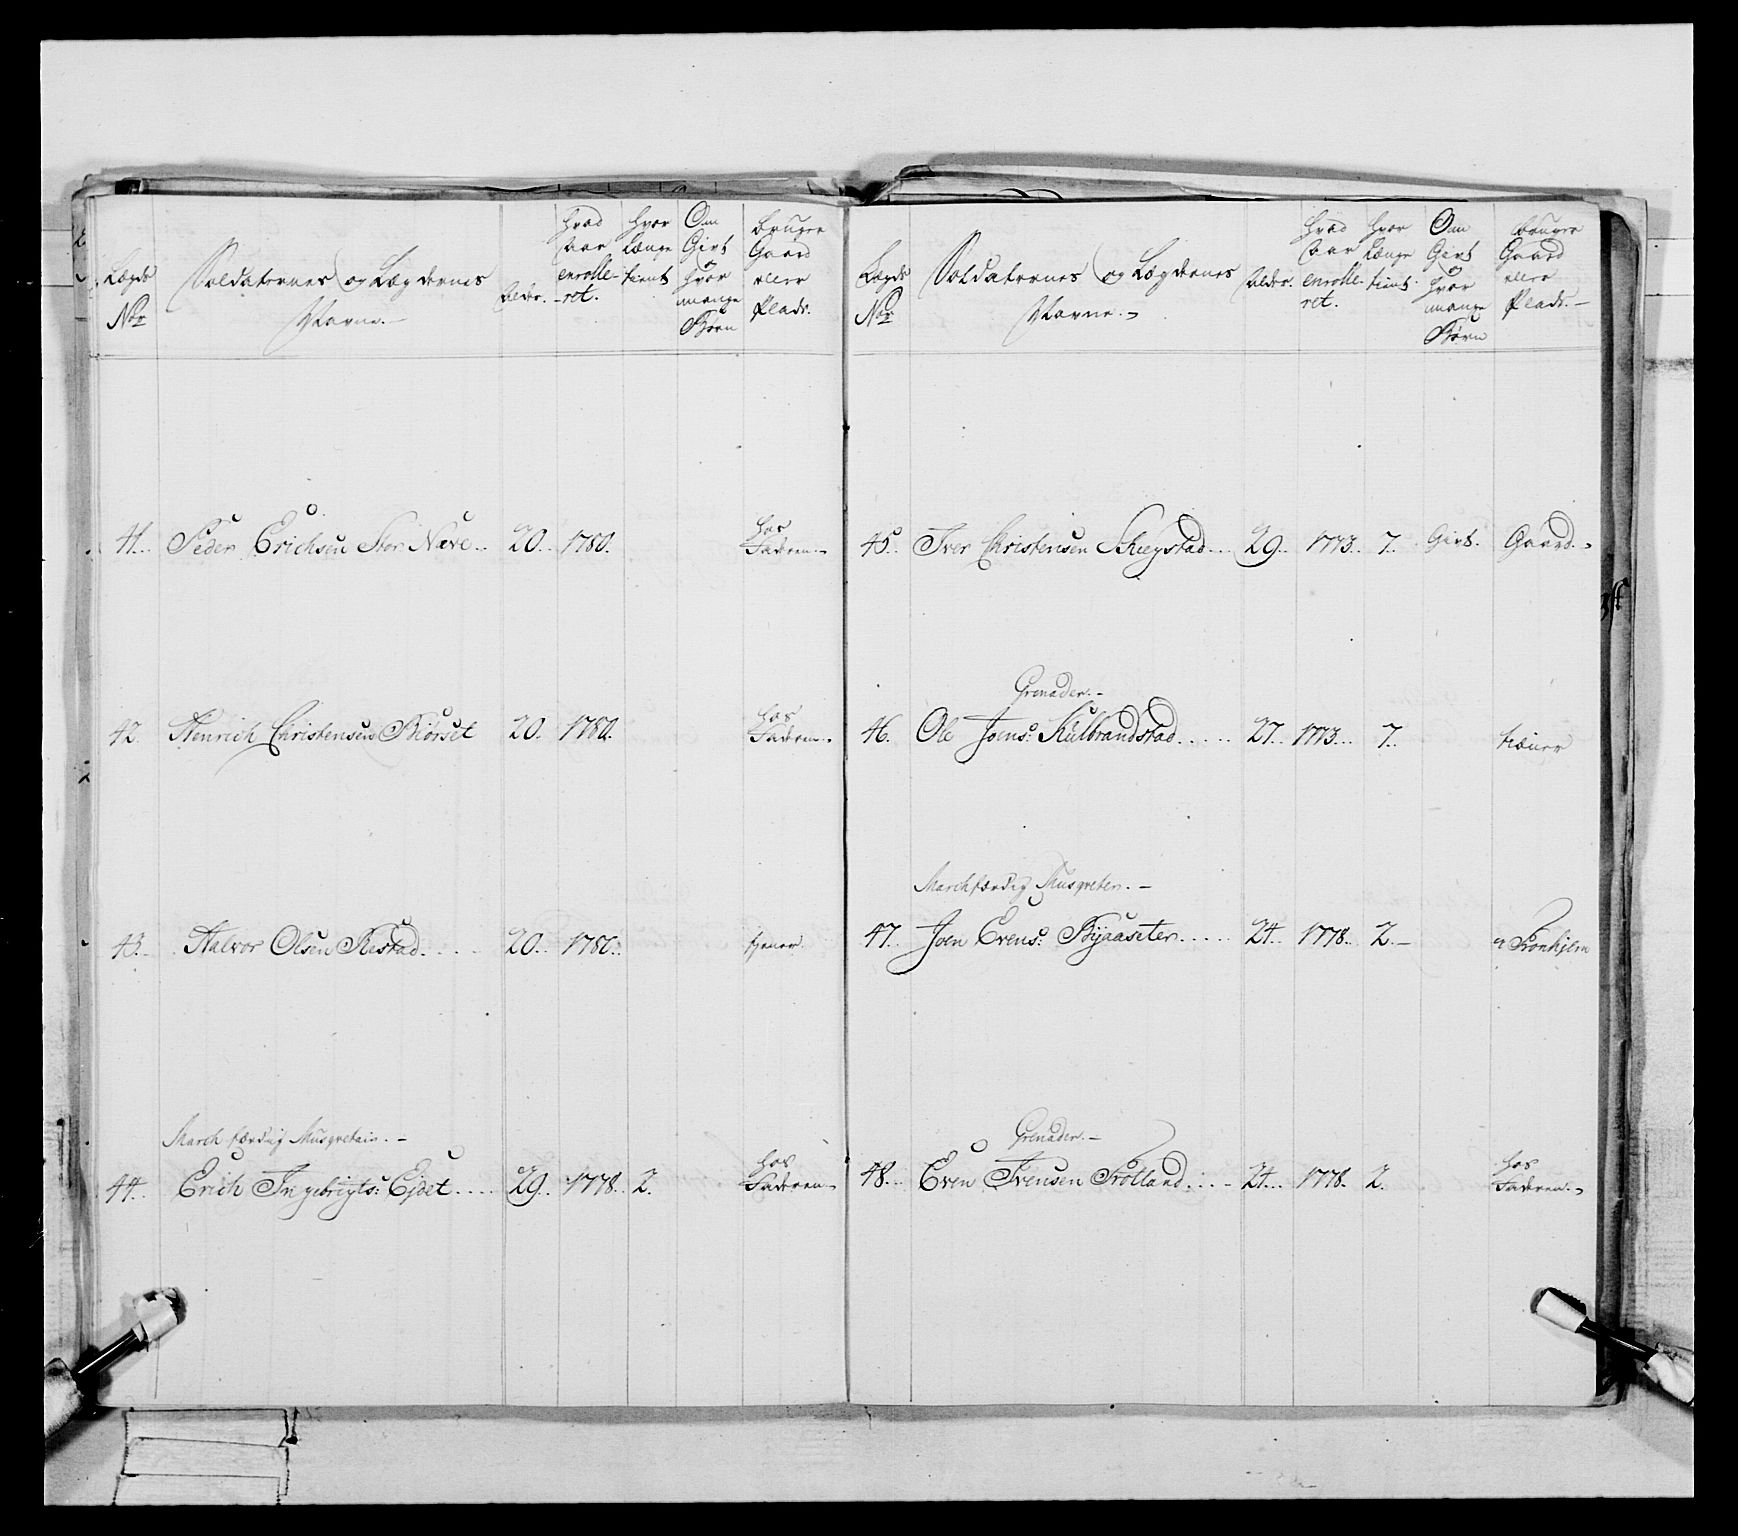 Lægds No
Soldaternes og Lægdernes Navne.
Alder.
Hvad Aar enrolle-ret.
Hvor Længe tient
Om Givt og Hvor mange Børn
Bruger Gaard eller Plads.
41. Peder Erichsen Stor Næve 20. 1780. hos Faderen
42. Henrich Christensen Børset 20. 1780. hos Faderen
43. Halvor Olsen Røstad 20. 1780. tjener
March færdig Musqveteir.
44. Erich Ingebrigts: Ejdet 29. 1778. 2. hos Faderen
Lægds No
Soldaternes og Lægdernes Navne.
Alder.
Hvad Aar enrolle-ret.
Hvor Længe tient.
Om Givt og Hvor mange Børn
Bruger Gaard eller Plads.
45. Iver Christensen 29. 1773. 7. Givt. Gaard.
Grenader.
46. Ole Joens: Kulbrandstad 27. 1773. 7. tiener
Marchfærdig Musqveter.
47. Joen Evens: Byaaseter 24. 1778. 2. i Tronhjem
Grenader.
48. Even Ivensen Frötland 24. 1778. 2. hos Faderen.